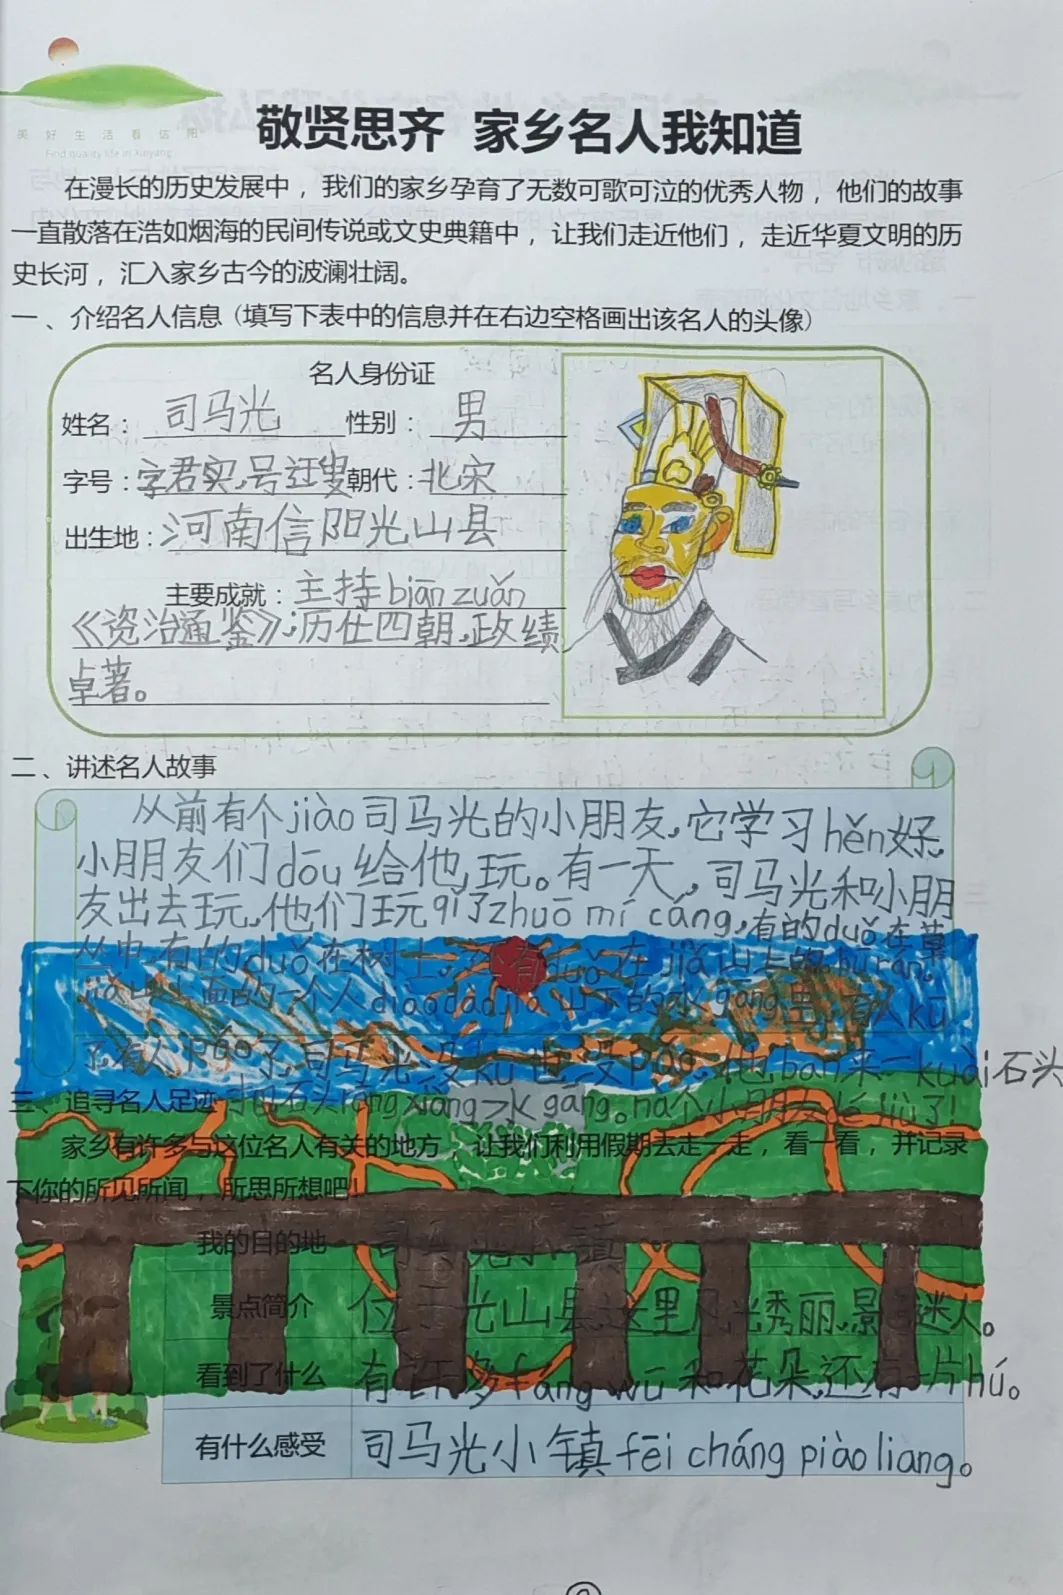 美好生活看信阳
Find quality life in Xinyang
敬贤思齐 家乡名人我知道
在漫长的历史发展中，我们的家乡孕育了无数可歌可泣的优秀人物，他们的故事
一直散落在浩如烟海的民间传说或文史典籍中，让我们走近他们，走近华夏文明的历
史长河，汇入家乡古今的波澜壮阔。
一、介绍名人信息（填写下表中的信息并在右边空格画出该名人的头像）
名人身份证
姓名：司马光 性别：男
字号：字君实，号迂叟 朝代：北宋
出生地：河南信阳光山县
主要成就：主持biān zuǎn
《资治通鉴》；历仕四朝，政绩
卓著。
二、讲述名人故事
从前有个jiào司马光的小朋友，它学习hěn好，
小朋友们dōu给他玩。有一天，司马光和小朋
友出去玩，他们玩引了zhuō mí cáng，有的duǒ在草
丛中，有的duǒ在树上，还有duǒ在jiǎ山上的，hūrán，
jiǎ山上面的一个人diào dào jiǎ山下的水gāng里，有人kū
了，有人pǎo了，司马光没kū也没pǎo，他bān来一kuài石头
用石头rēng xiàng水gāng。nà个小朋友bèi jiù了！
三、追寻名人足迹
家乡有许多与这位名人有关的地方，让我们利用假期去走一走，看一看，并记录
下你的所见所闻，所思所想吧！
我的目的地 司马光小镇
景点简介 位于光山县，这里风光秀丽，景色迷人。
看到了什么 有许多fáng wū和花朵，还有一片hú。
有什么感受 司马光小镇fēi cháng piào liang。